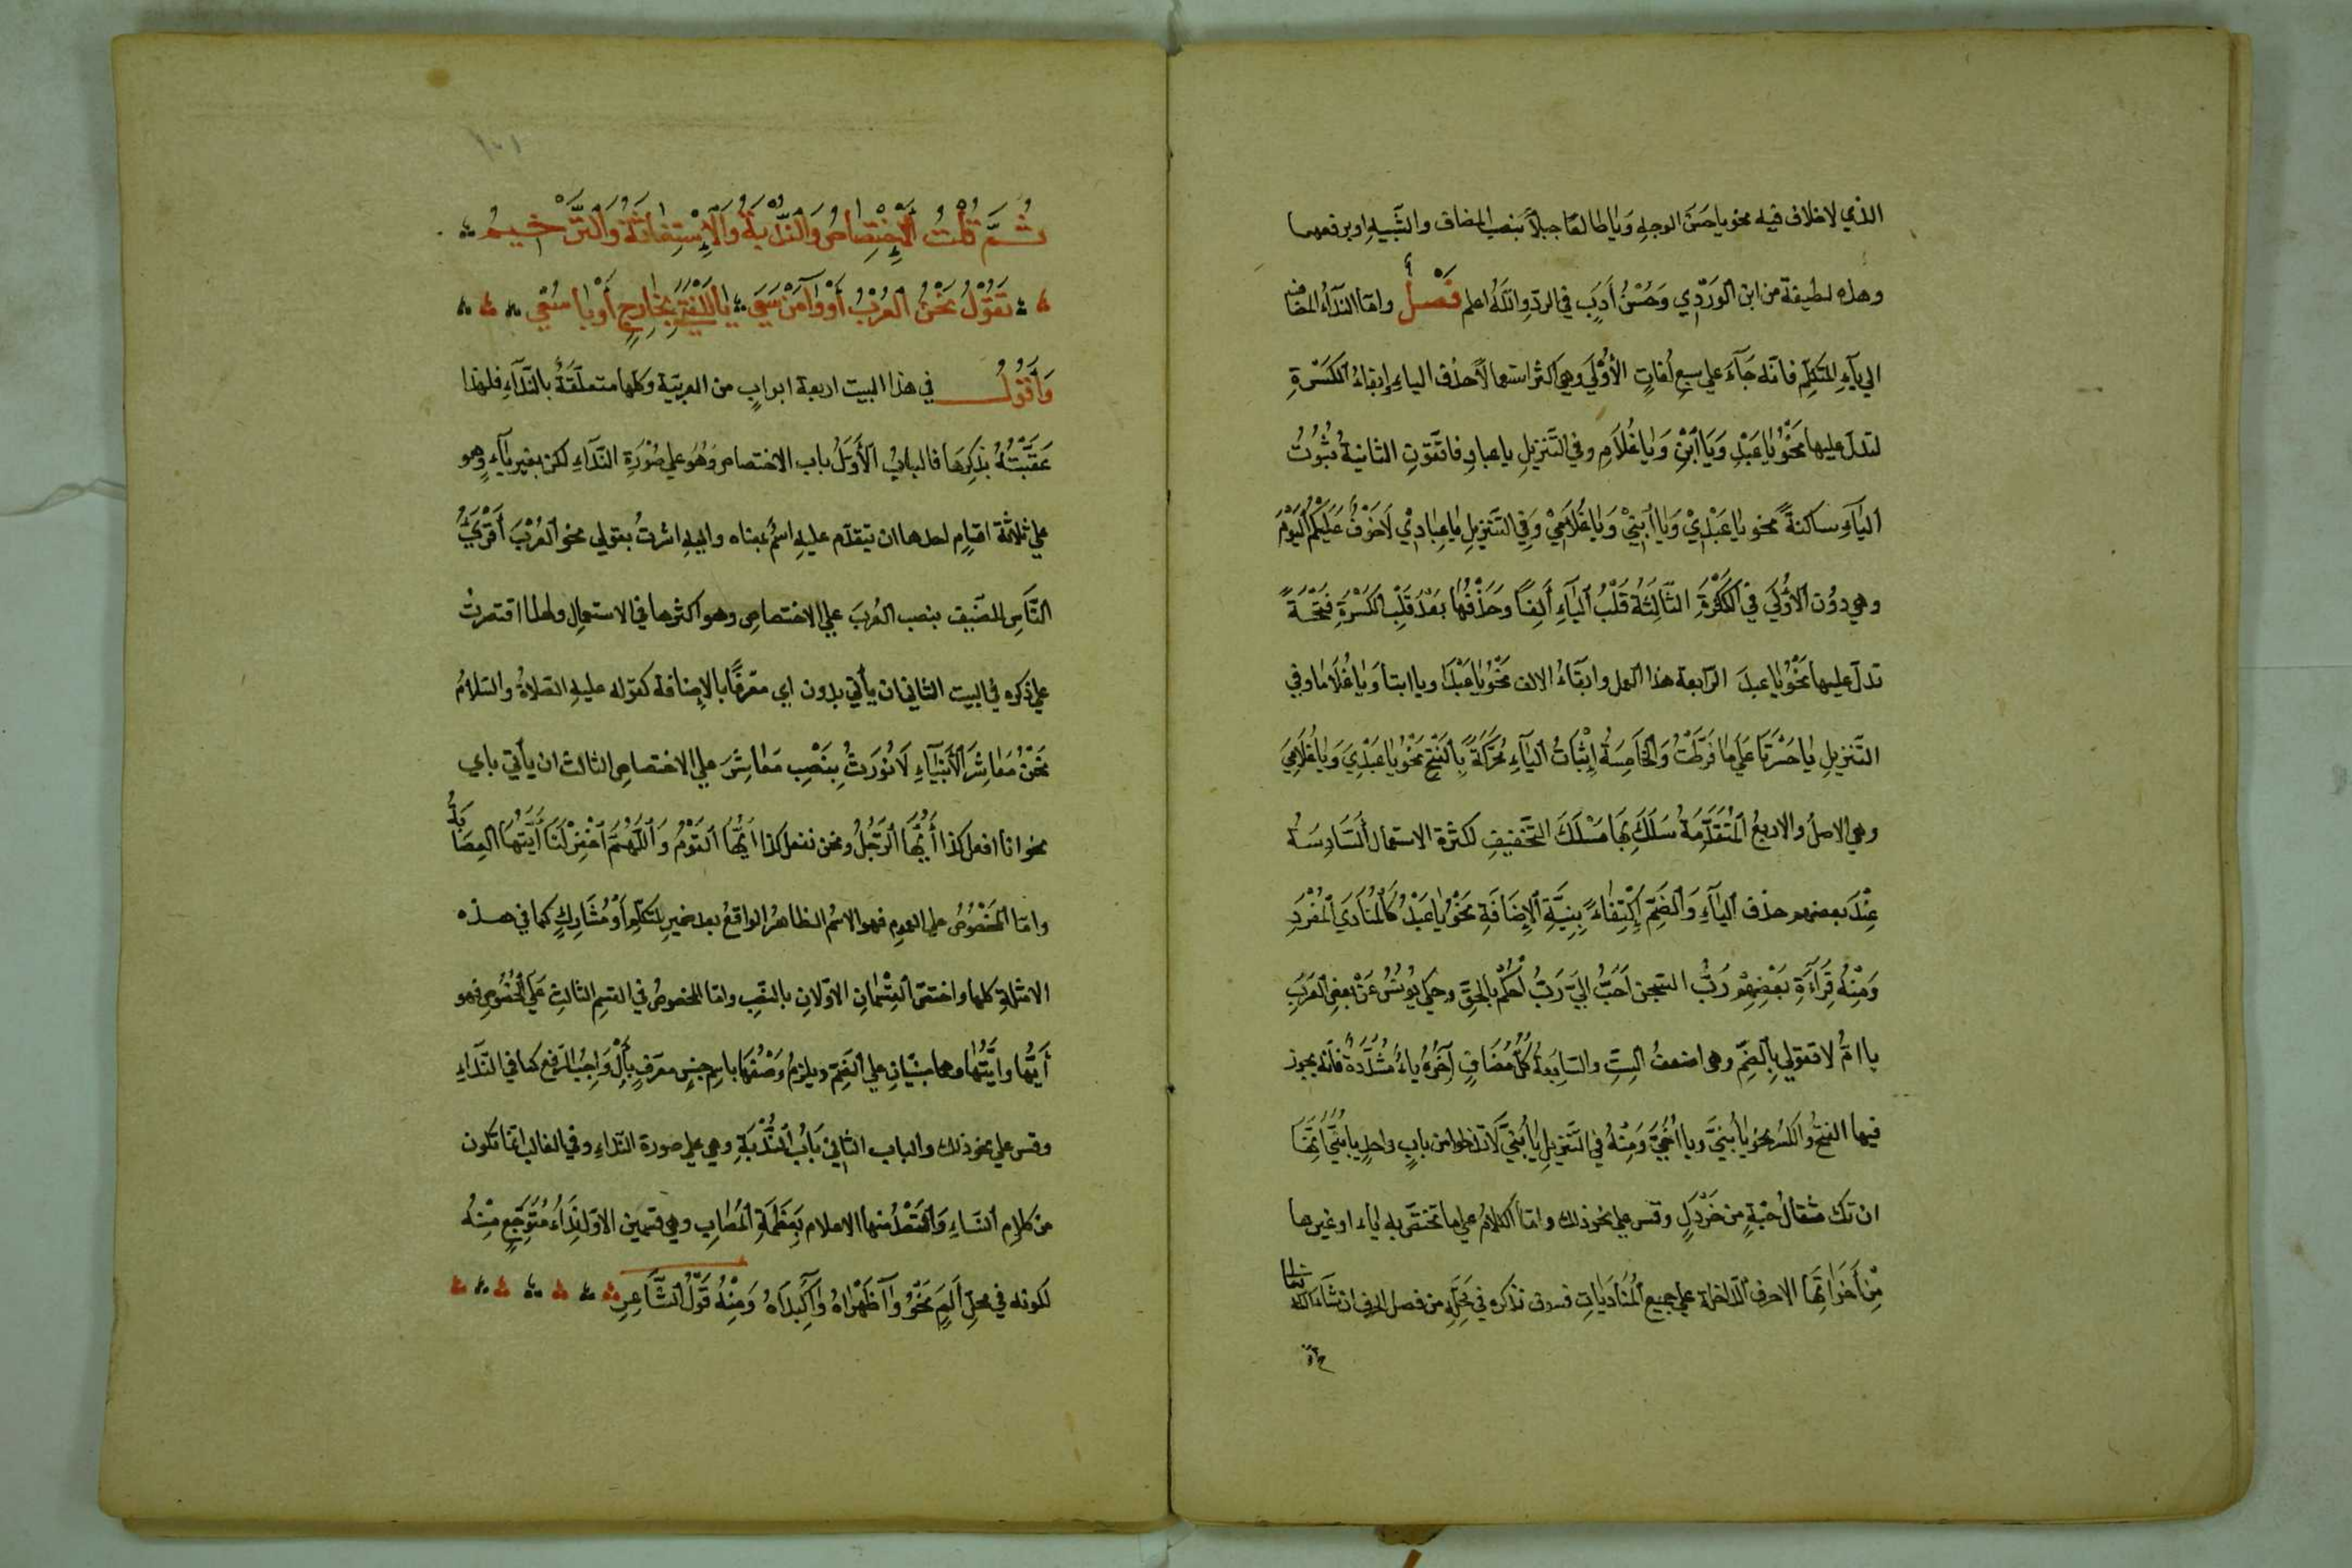 الذي لا خلاف فيه نحو يا حَسَنَ الوجهِ وَيَا طالعًا جبلًا بنصب المضاف والشَّبيهِ او برفعهما
وهذه لطيفة من ابن الْوَرْدِي وَحُسْنُ أَدَبٍ في الردّ واللّهُ اعلم فَصْلٌ وامّا النّدآءُ المضاف
الي يآءِ المتكلِّم فانّه جَآءَ علي سبعِ لُغاتٍ الْأُوْلَي وهي اكثر استعمالًا حذف الياءِ وابقاءُ الْكَسْرَةِ
لتدلّ عليها نَحْوُ يَا عَبْدِ وَيَا ابْنِ وَيَا غُلَامِ وفي التَّنزيلِ يا عبادِ فاتّقونِ الثانيةُ ثُبُوْتُ
اليَآءِ ساكنةً نحو يا عَبْدِيْ وَيَا ابْنِيْ وَيَا غُلَامِيْ وَفي التنزيلِ يا عِبَادِيْ لَا خَوْفٌ عَلَيْكُمُ الْيَوْمَ
وهي دوُن الْأُوْلَي في الْكَثْرَةِ الثَّالِثَةُ قَلْبُ الْيَآءِ أَلِفًا وَحَذْفُهَا بَعْدَ قَلْبِ الْكَسْرَةِ فَتْحَةً
تدلّ عليها نَحْوُ يَا عبدَ الرّابعة هذا العمل وابقآءُ الالف نَحْوُ يَا عَبْدَا ويا ابنا وَيَا غُلَامَا وفي
التَّنزيلِ يَا حَسْرَتَا عَلَي مَا فَرَّطْتُ وَالْخَامِسَةُ اِثْبَاتُ الْيَآءِ مُحَرَّكَةً بِالْفَتْحِ نَحْوُ يَا عَبْدِيَ وَيَا غُلَامِيَ
وهي الاصلُ والاربعُ الْمُتَقَدِّمَةُ سَلَكَ بِهَا مَسْلَكَ التَّخفيفِ لكثرة الاستعمال السَّادِسَةُ
عِنْدَ بعضهم حذف اليآءِ وَالضَّمّ اِكْتِفَاءً بِنِيَّةِ الْاِضَافَةِ نَحْوُ يَا عَبْدُ كَالْمُنَادَي الْمُفْرَدِ
وَمِنْهُ قِرَآءَةِ بَعْضِهِمْ رَبُّ السّجن اَحَبُّ الَيَّ رَبُّ احْكُمْ بِالحَقِّ وحكي يُوْنُسُ عَنْ بعضِ العَرَبِ
يا امُّ لا تفعلي بِالضَّمِّ وهي اضعفُ السِّتِّ والسّابعةُ كُلُّ مُضَافٍ آخِرُهُ يَاءٌ مُشَدَّدَةٌ فانّه يجوز
فيها الفتحُ والكسرُ نحو يا بُنَيَّ ويا اُخَيَّ وَمِنْهُ في التَّنزيلِ يَا بُنَيَّ لَا تدخلوا من بابٍ واحدٍ يا بُنَيَّ اِنَّهَا
ان تك مثقالَ حَبّةٍ من خَرْدَلٍ وقس علي نحو ذلك وامّا الكلامُ علي ما تختصّ به ياء او غيرها
مِنْ أَخَوَاتِهَا الاحرف الدّاخلة علي جميع الْمُنَادَيَاتِ فسوف نذكره في مَحَلِّهِ من فصل الحرف ان شَآءَ اللّه
تعالي
ثُمَّ قُلْتُ اَلْاِخْتِصَاصُ وَالنُّدْبَةُ وَالْاِسْتِغَاثَةُ وَالتَّرْخِيمُ
تَقُوْلُ نَحْنُ الْعُرْبُ أَوْ وَا مَنْ سَعَي
وَأَقُوْلُ في هذا البيت اربعة ابوابٍ من العربيّة وكلها متعلّقةٌ بالنّدآءِ فلهذا
عَقَّبْتُهُ بِذِكْرِهَا فالبابُ الْأَوّلُ باب الاختصاص وَهُوَ علي صُوْرَةِ النّدَاءِ لكن بغير يآءٍ وهو
علي ثلاثة اقسامٍ احدها ان يتقدّم عليه اسمٌ بمعناه واليه اشرتُ بقولي نحن العُرْبَ أَقْرَي
النَّاسِ للضّيف بنصب العُربَ علي الاختصاصِ وهو اكثرها في الاستعمالِ ولهذا اقتصرتُ
علي ذكره في البيت الثاني ان يأتي بدون اي معرّفًا بالاضافة كقوله عليه الصّلاةُ والسّلامُ
نَحْنُ مَعَاشِرَ الْأَنْبِيَآءِ لَا نُوْرَثُ بِنَصْبِ مَعَاشِرَ علي الاختصاصِ الثالث ان يأتي باي
نحو انا افعل كذا أَيُّهَا الرَّجُلُ ونحن نفعل كذا أَيُّهَا القَوْمُ وَاللَّهُمَّ اغْفِرْ لَنَا أَيَّتُهَا العِصَابَةُ
وامّا الْمَخْصُوْصُ علي العموم فهو الاسمُ الظاهرُ الواقعُ بعد ضمير المتكلِّمِ أَوْ مُشَارِكٍ كما في هذه
الامثلة كلها واختصّ القِسْمَانِ الاوّلانِ بالنّصبِ وامّا المخصوصُ في القسمِ الثالثِ عَلَي الخُصُوْصِ فهو
أَيُّهَا وأيَّتُهَا وهما مبنيّانِ علي الضّمِّ ويلزمُ وَصْفُهُمَا باسمِ جنسٍ معرّفٍ بِأَلْ وَاجِبِ الرّفعِ كما في النّدَآءِ
وقس علي نحو ذلك والباب الثاني بَابُ النُّدْبَةِ وهي علي صورة النّداءِ وفي الغالب انّما تكون
من كلامِ النّساءِ وَالْقَصْدُ منها الاعلام بِعَظَمَةِ الْمُصَابِ وهي قسمين الاوّلِ نِدَاءُ مُتَوَجَّعٍ مِنْهُ
لكونه في محلِّ أَلَمٍ نَحْوُ وَا ظَهْرَاهُ وَا كَبِدَاهُ وَمِنْهُ قَوْلُ الشَّاعِرِ